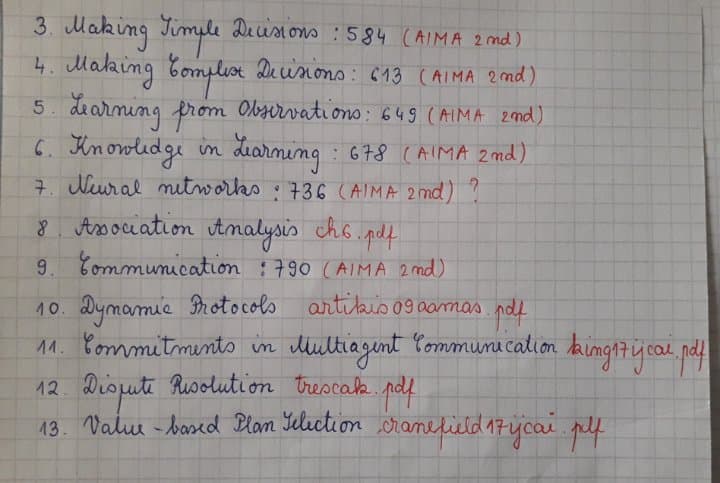 3. Making Simple Decisions : 584 (AIMA 2nd)
4. Making Complex Decisions : 613 (AIMA 2nd)
5. Learning from Observations : 649 (AIMA 2nd)
6. Knowledge in Learning : 678 (AIMA 2nd)
7. Neural networks : 736 (AIMA 2nd) ?
8. Association Analysis ch6.pdf
9. Communication : 790 (AIMA 2nd)
10. Dynamic Protocols artikis09aamas.pdf
11. Commitments in Multiagent Communication king17ijcai.pdf
12. Dispute Resolution trescak.pdf
13. Value-based Plan Selection cranefield17ijcai.pdf